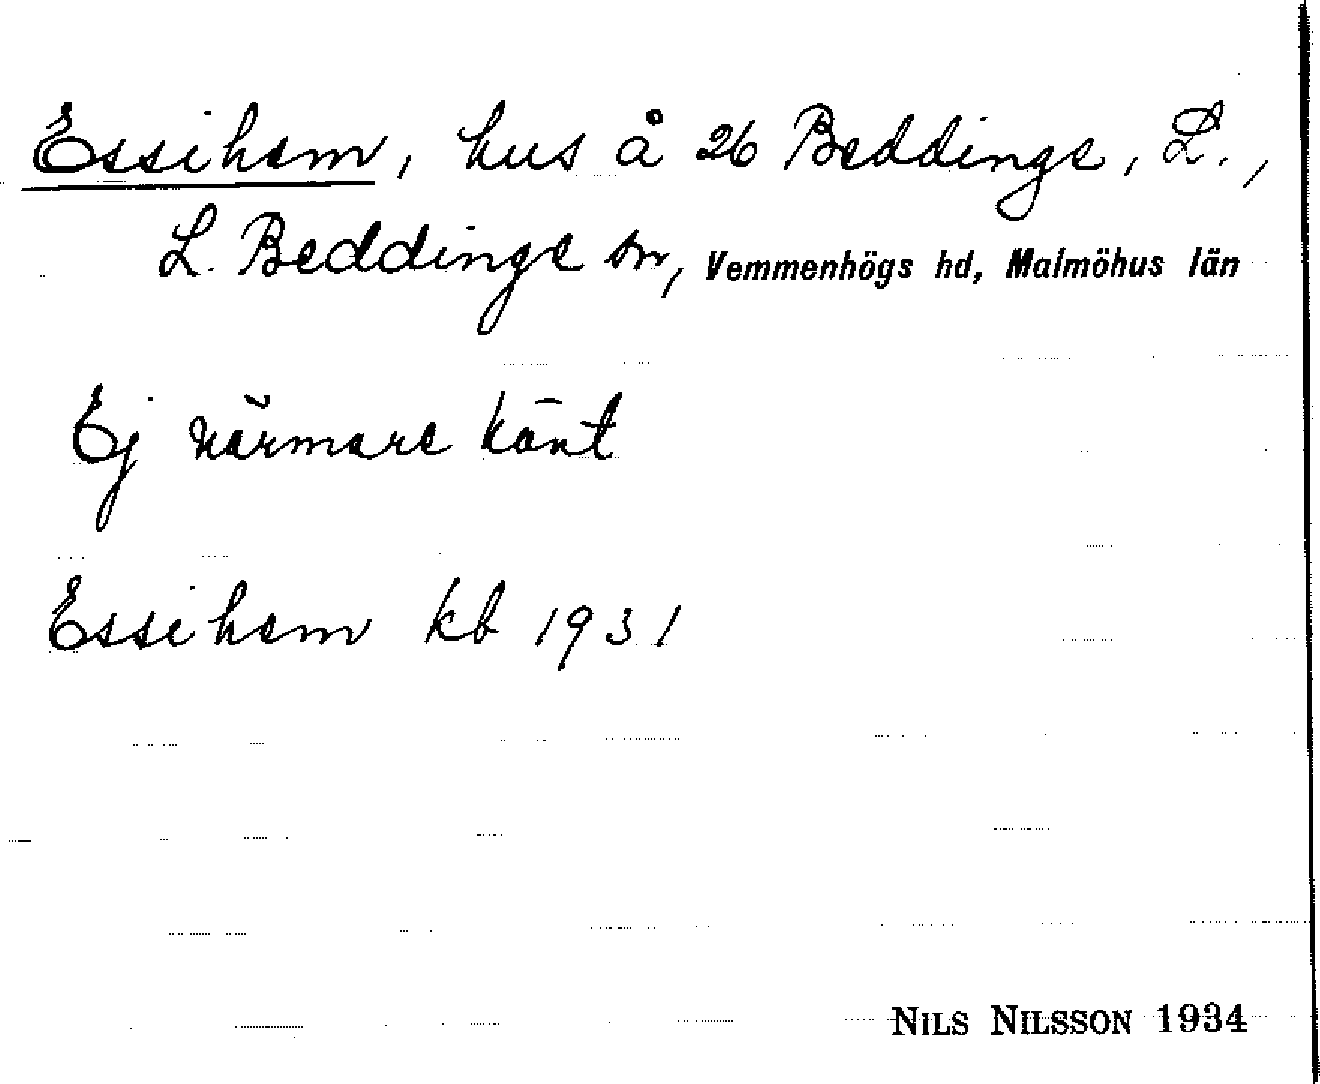 Essihem, hus å 26 Beddinge, L.,
L. Beddinge sn, Vemmenhögs hd, Malmöhus län
Ej närmare känt
Essihem kb 1931
NILS NILSSON 1934